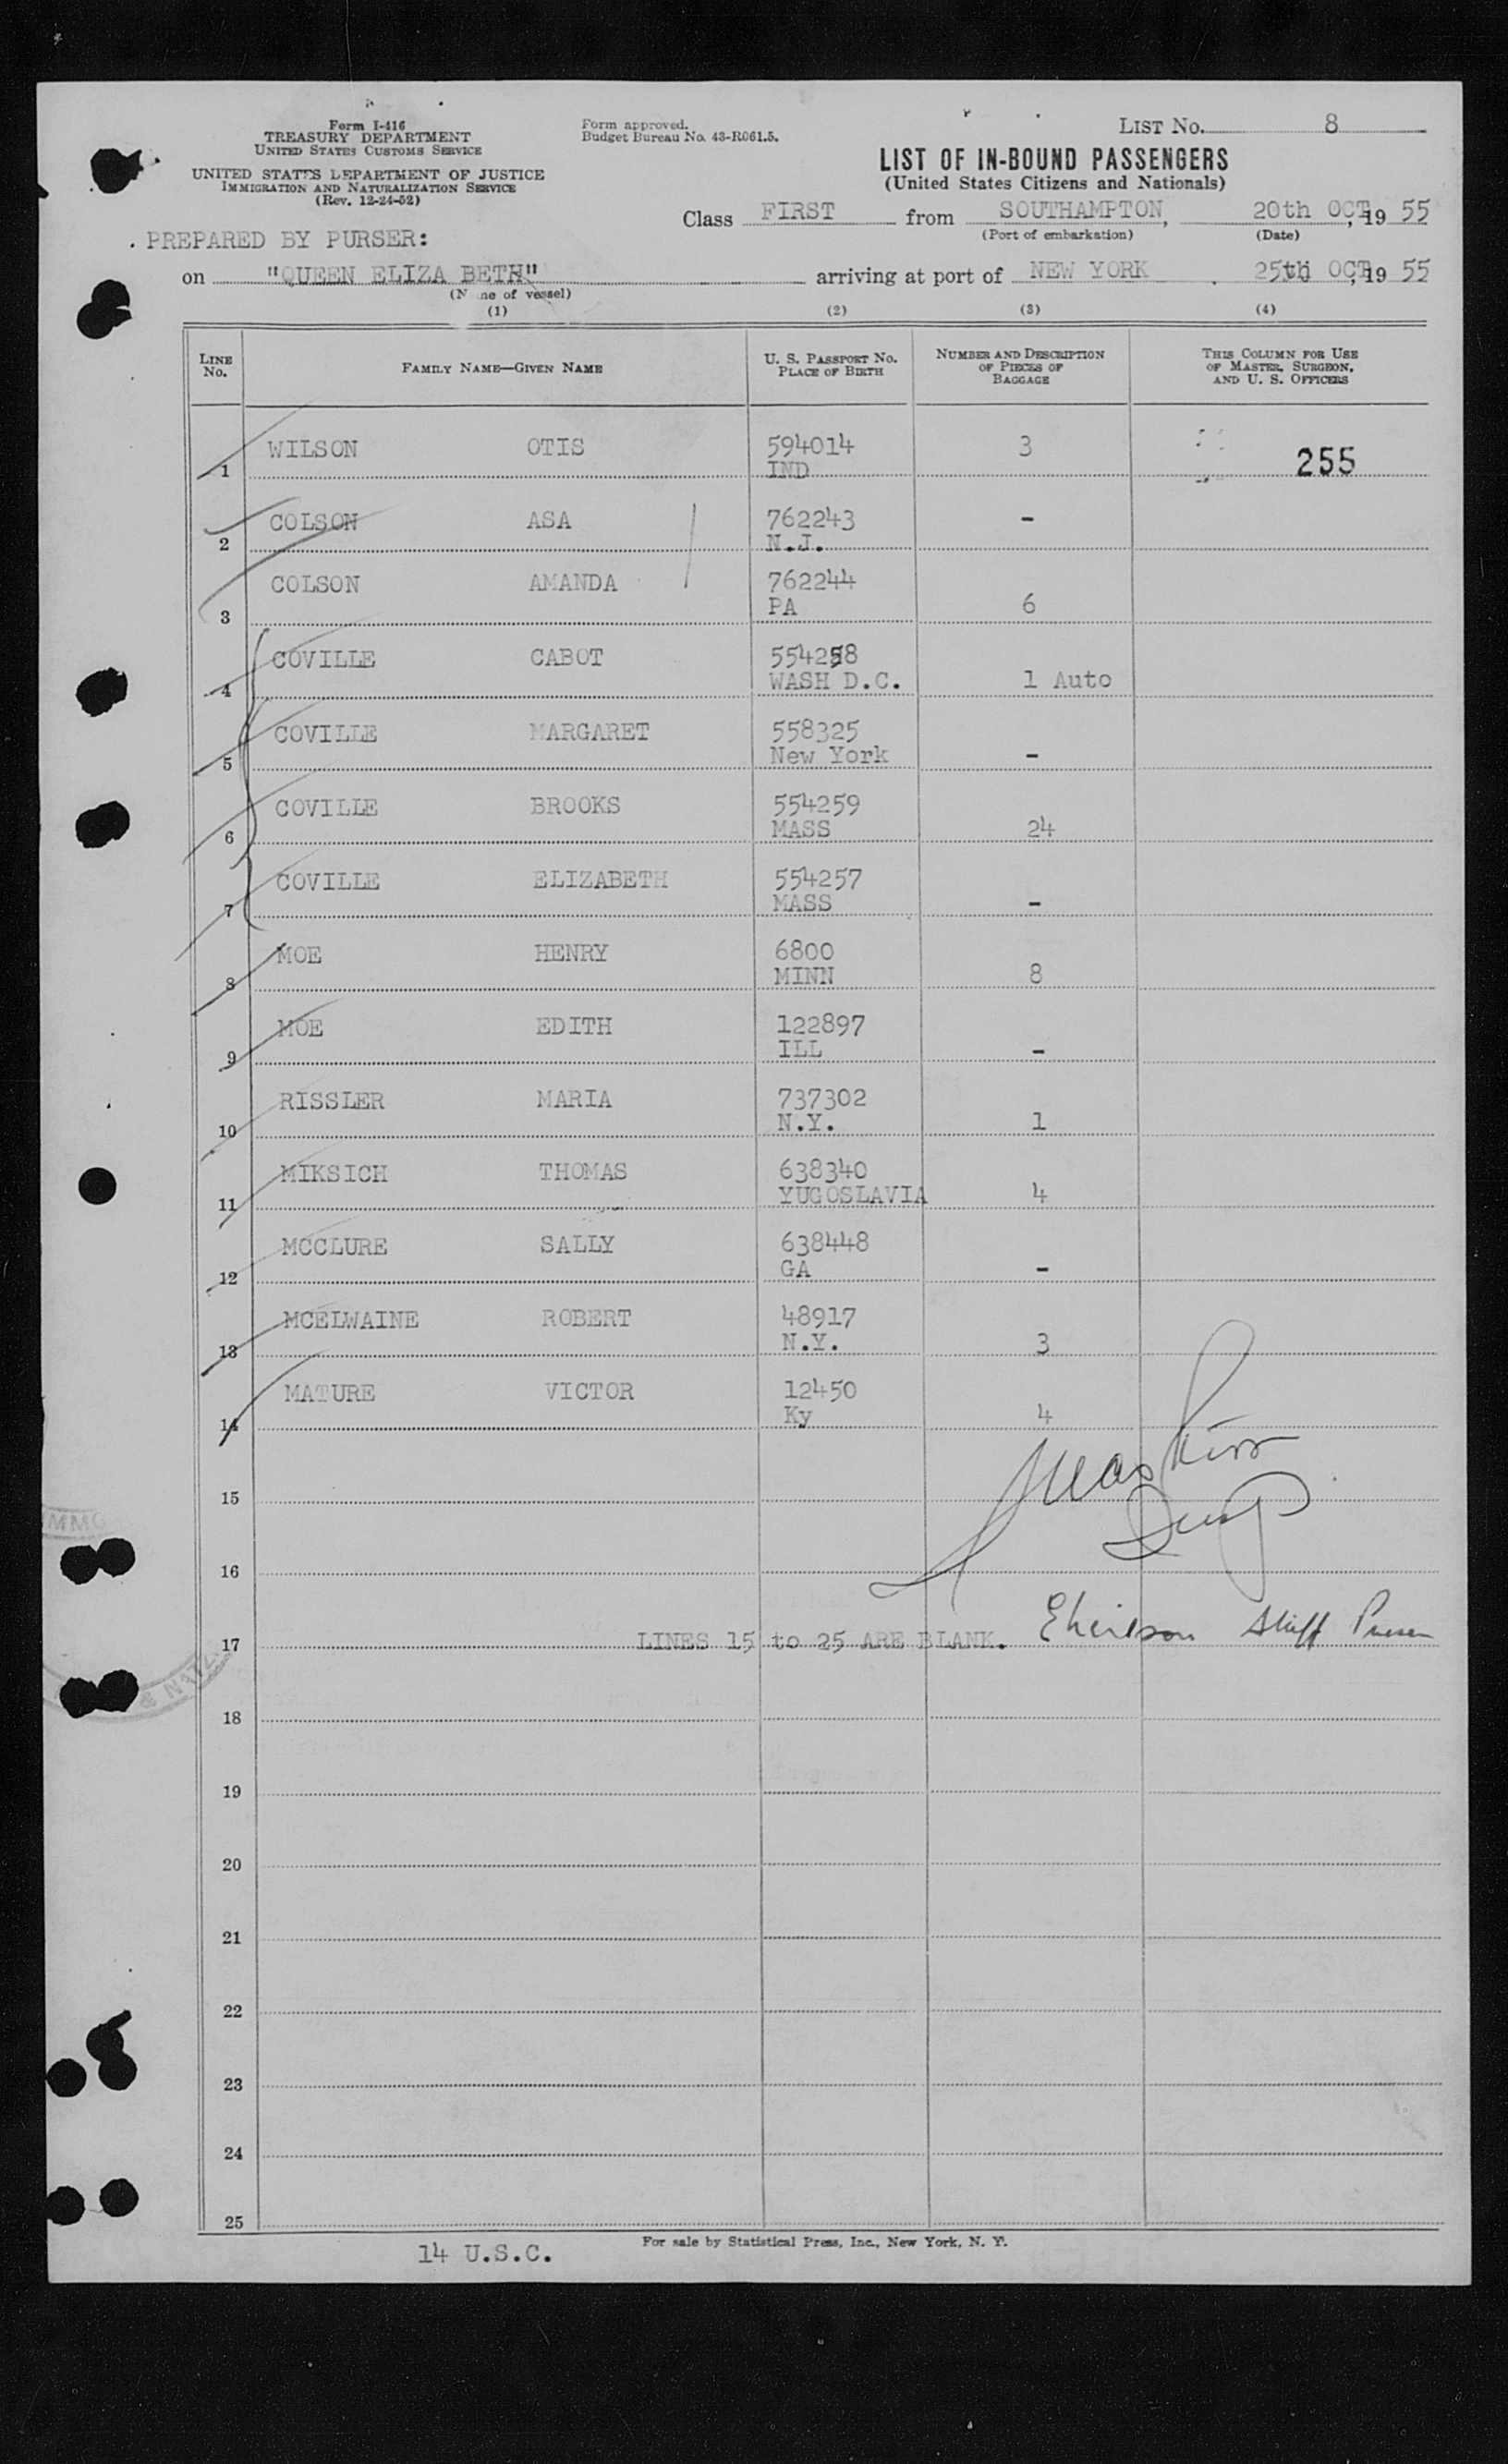 Form I-416
TREASURY DEPARTMENT
UNITED STATES CUSTOMS SERVICE
UNITED STATES DEPARTMENT OF JUSTICE
IMMIGRATION AND NATURALIZATION SERVICE
(Rev. 12-24-52)
Form approved.
Budget Bureau No. 43-R061.5.
LIST No. 8
LIST OF IN-BOUND PASSENGERS
(United States Citizens and Nationals)
Class FIRST from SOUTHAMPTON, 20th OCT, 19 55
(Port of embarkation) (Date)
. PREPARED BY PURSER:
on "QUEEN ELIZA BETH" arriving at port of NEW YORK . 25th OCT, 19 55
(N me of vessel)
(1) (2) (3) (4)
LINE No. FAMILY NAME—GIVEN NAME U. S. PASSPORT No. PLACE OF BIRTH NUMBER AND DESCRIPTION OF PIECES OF BAGGAGE THIS COLUMN FOR USE OF MASTER, SURGEON, AND U. S. OFFICERS
WILSON OTIS 594014 3
1 IND 255
COLSON ASA 762243 -
2 N.J.
COLSON AMANDA 762244
3 PA 6
COVILLE CABOT 554258
4 WASH D.C. 1 Auto
COVILLE MARGARET 558325
5 New York -
COVILLE BROOKS 554259
6 MASS 24
COVILLE ELIZABETH 554257
7 MASS -
MOE HENRY 6800
8 MINN 8
MOE EDITH 122897
9 ILL -
RISSLER MARIA 737302
10 N.Y. 1
MIKSICH THOMAS 638340
11 YUGOSLAVIA 4
MCCLURE SALLY 638448
12 GA -
MCELWAINE ROBERT 48917
13 N.Y. 3
MATURE VICTOR 12450
14 Ky 4
15
16
17 LINES 15 to 25 ARE BLANK. Staff Purser
18
19
20
21
22
23
24
25
14 U.S.C.
For sale by Statistical Press, Inc., New York, N. Y.